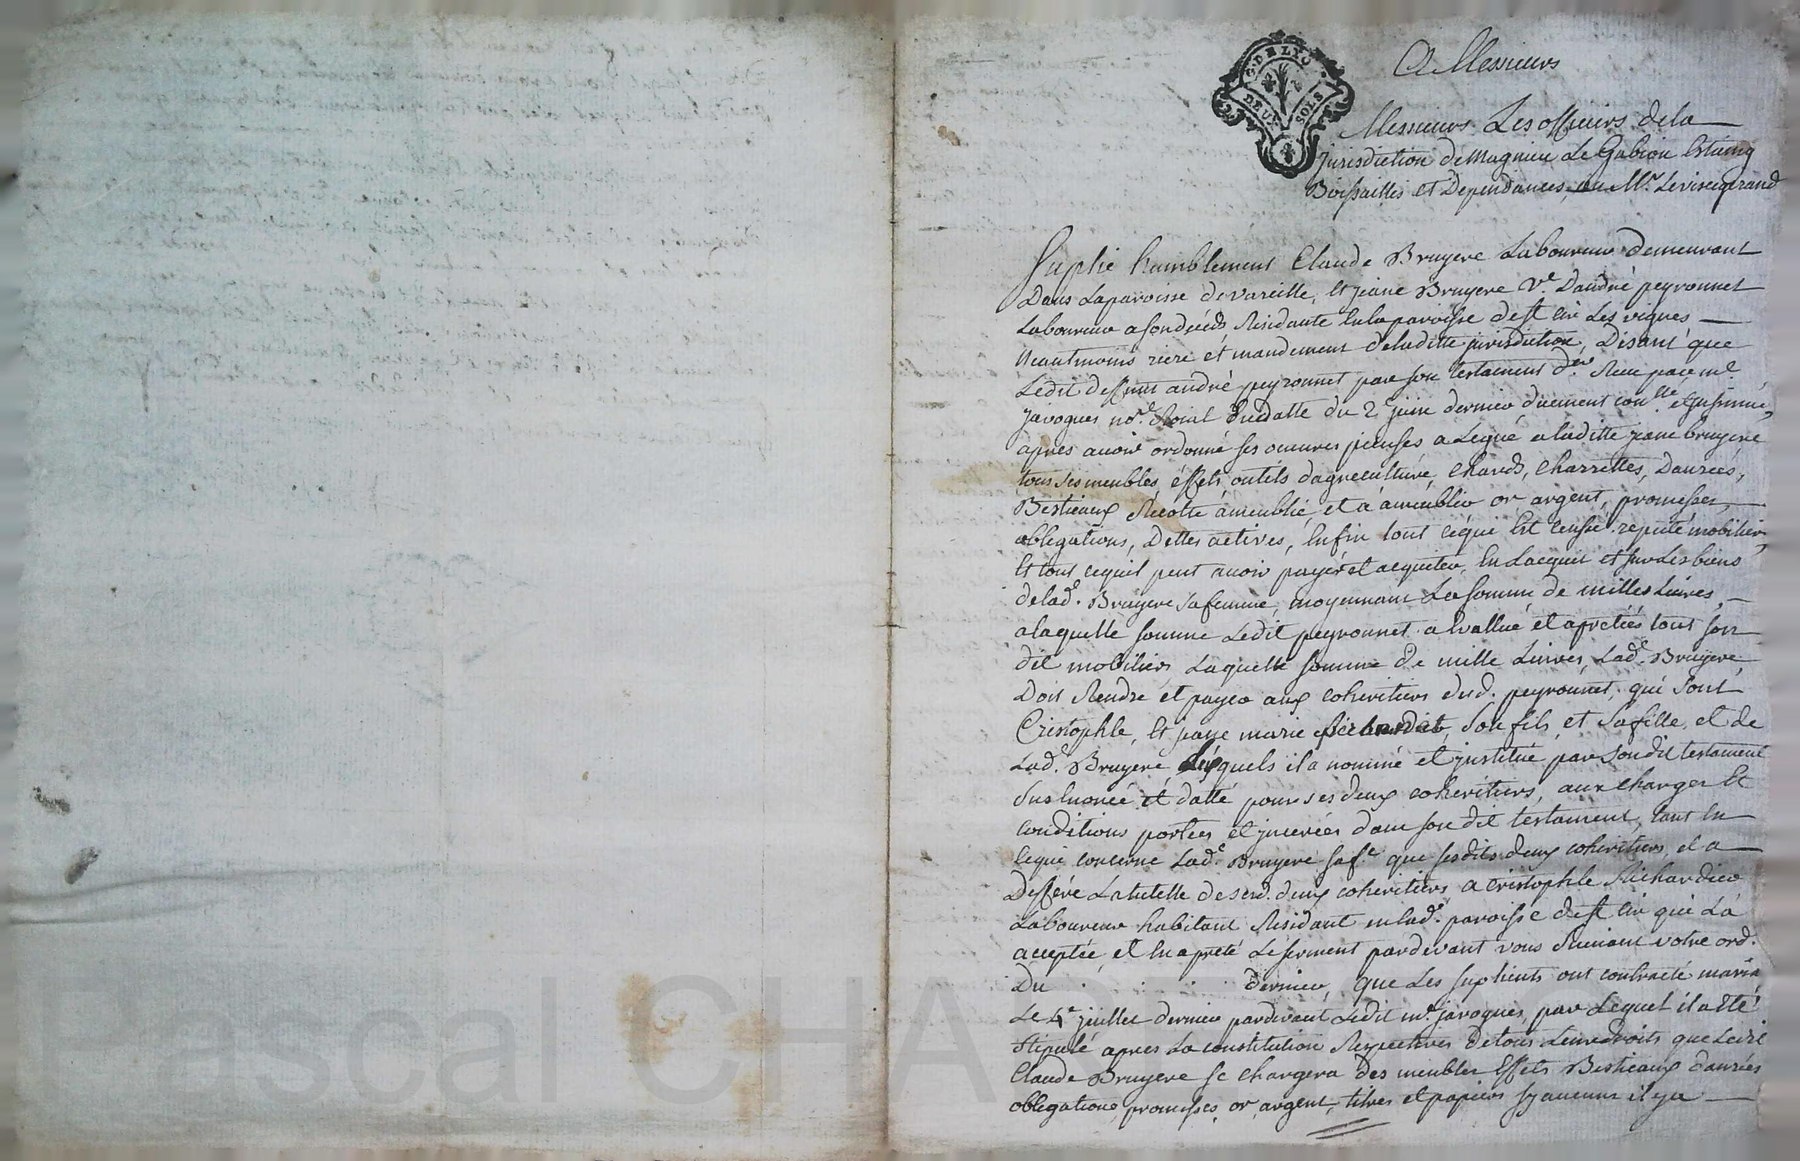 G. DE LYO
DEUX SOLS
A Messieurs
Messieurs Les officiers dela
jurisdiction de Magnieu Le Gabion Estaing
Boissailles et Dependances, ou Mr. Leviseigerand
Suplie humblement Claude Bruyere Laboureur demeurant
Dans Laparoisse devareille, et jeane Bruyere Ve. Dandré peyronnet
Laboureur asondécéds Residante enlaparoisse dest cir Les vignes
Neautmoins riere et mandement deladitte jurisdiction, Disant que
Ledit deffunt andré peyronnet par son testament der. Reçu par me
javogues nore. Roial endatte du 2e juin dernier düement conlle. et jnsinué,
apres avoir ordonné ses oeuvres pieuses a Legué a laditte jeane bruyere
tous ses meubles effets outils dagreculture, chards, charrettes, Danrées,
Bestieaux Recolte ameublié et a ameublir or argent, promesses,
oblegations, Dettes actives, Enfin tout ceque Est censé réputé mobilier,
Et tout cequil peut avoir payér et acquiter, En Lacquit et sur Les biens
delade. Bruyere safemme, moyennant La somme de milles Livres,
alaquelle somme Ledit peyronnet a Evallué et aprétiés tout son
dit mobilier, Laquelle somme de mille Livres, Lade. Bruyere,
Dois Rendre et payer aux coheritiers dud. peyronnet, qui sont
Cristophle, Et jane marie, son fils, et safille, et de
Lad. Bruyere Lesquels il a nommé et jnstitué par Son dit testament
Susenoncé et datté pour ses deux coheritiers, aux charges Et
conditions portées et jncerées dans son dit testament, tant En
cequi concerne Lade. Bruyere safe. que sesdits deux coheritiers, et a
Defféré La tutelle de sesd. deux coheritiers, a Cristophle Richardier
Laboureur habitant Residant en lade. paroisse dest cir qui La
acceptée, et En apreté Leserment pardevant vous Suivant votre ord.
Du . . . . dernier, que Les suplients ont contracté maria
Le 4e juillet dernier pardevant Ledit me. javogues, par Lequel il a Eté
Stipulé apres La constitution Respectives detous Leurs droits que Ledit
Claude Bruyere se chargera des meubles Effets Bestieaux danrées
oblegations, promesses or, argent, titres et papiers sy aucuns il y a
ascal CHA